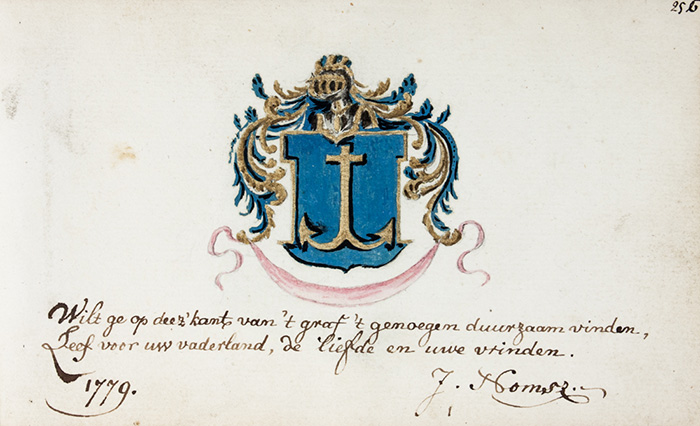 256
Wilt ge op deez' kant van 't graf 't genoegen duurzaam vinden,
Leef voor uw vaderland, de liefde en uwe vrinden.
1779. J. Nomsz.